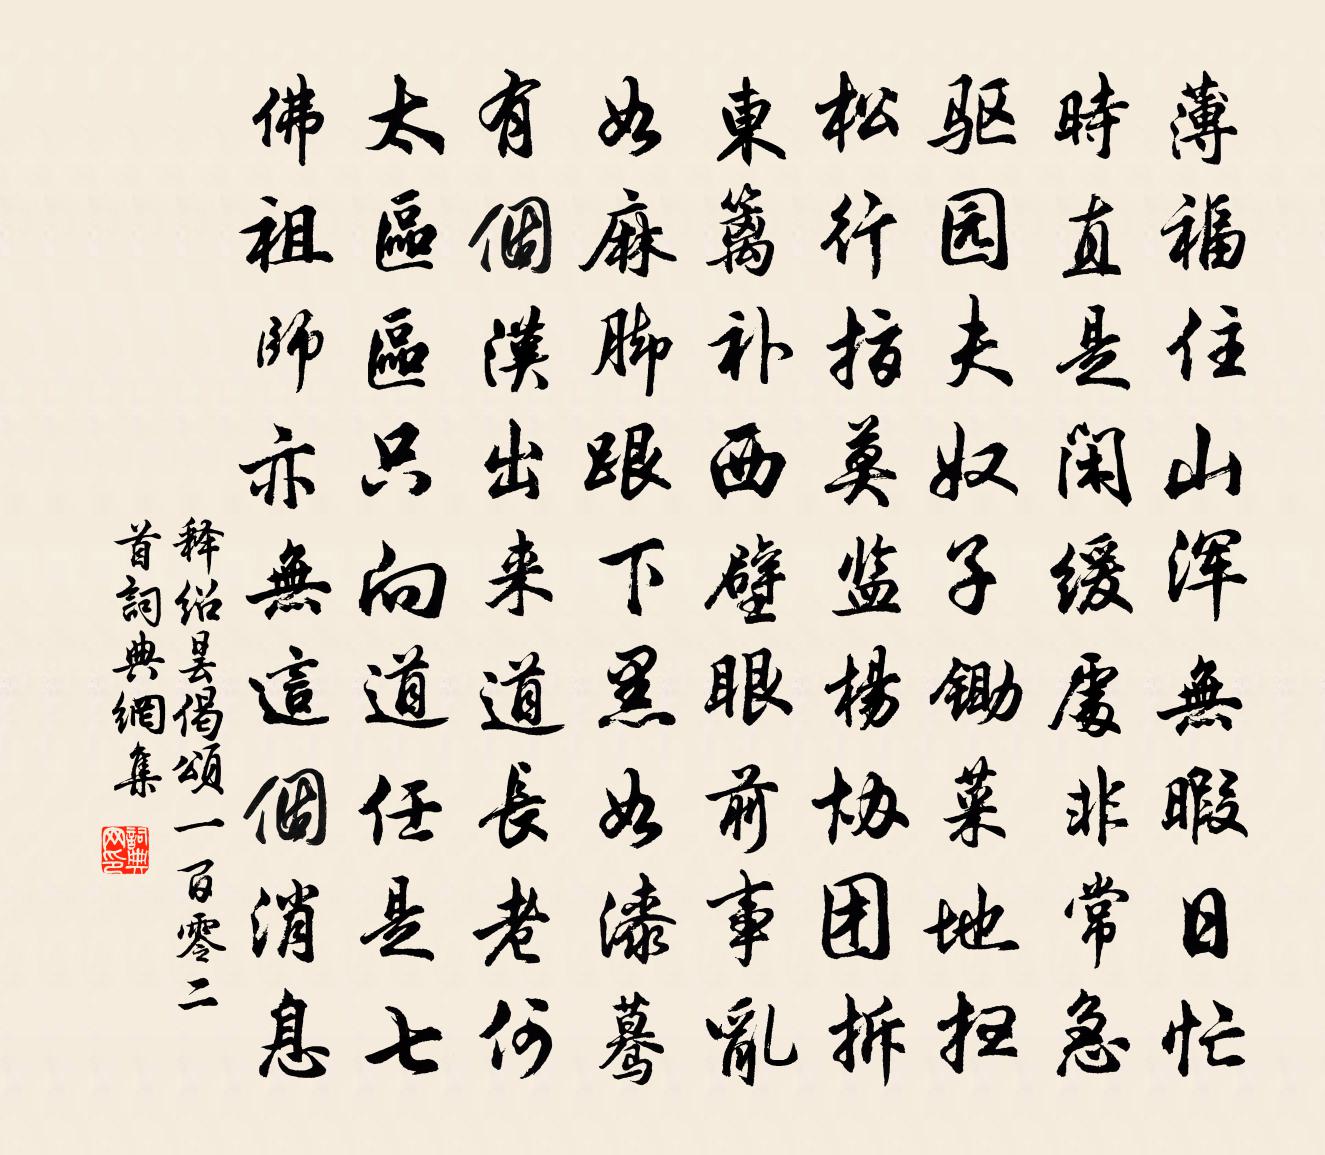 薄福住山浑無暇日忙
時直是閑缓處非常急
驱园夫奴子锄菜地扭
松行指莫监楊协团拆
東篱补西壁眼前事亂
如麻脚跟下黑如漆蓦
有個漢出来道長老何
太區區只向道任是七
佛祖師亦無這個消息
释绍昙偈頌一百零二
首詞典網集
詞典网印